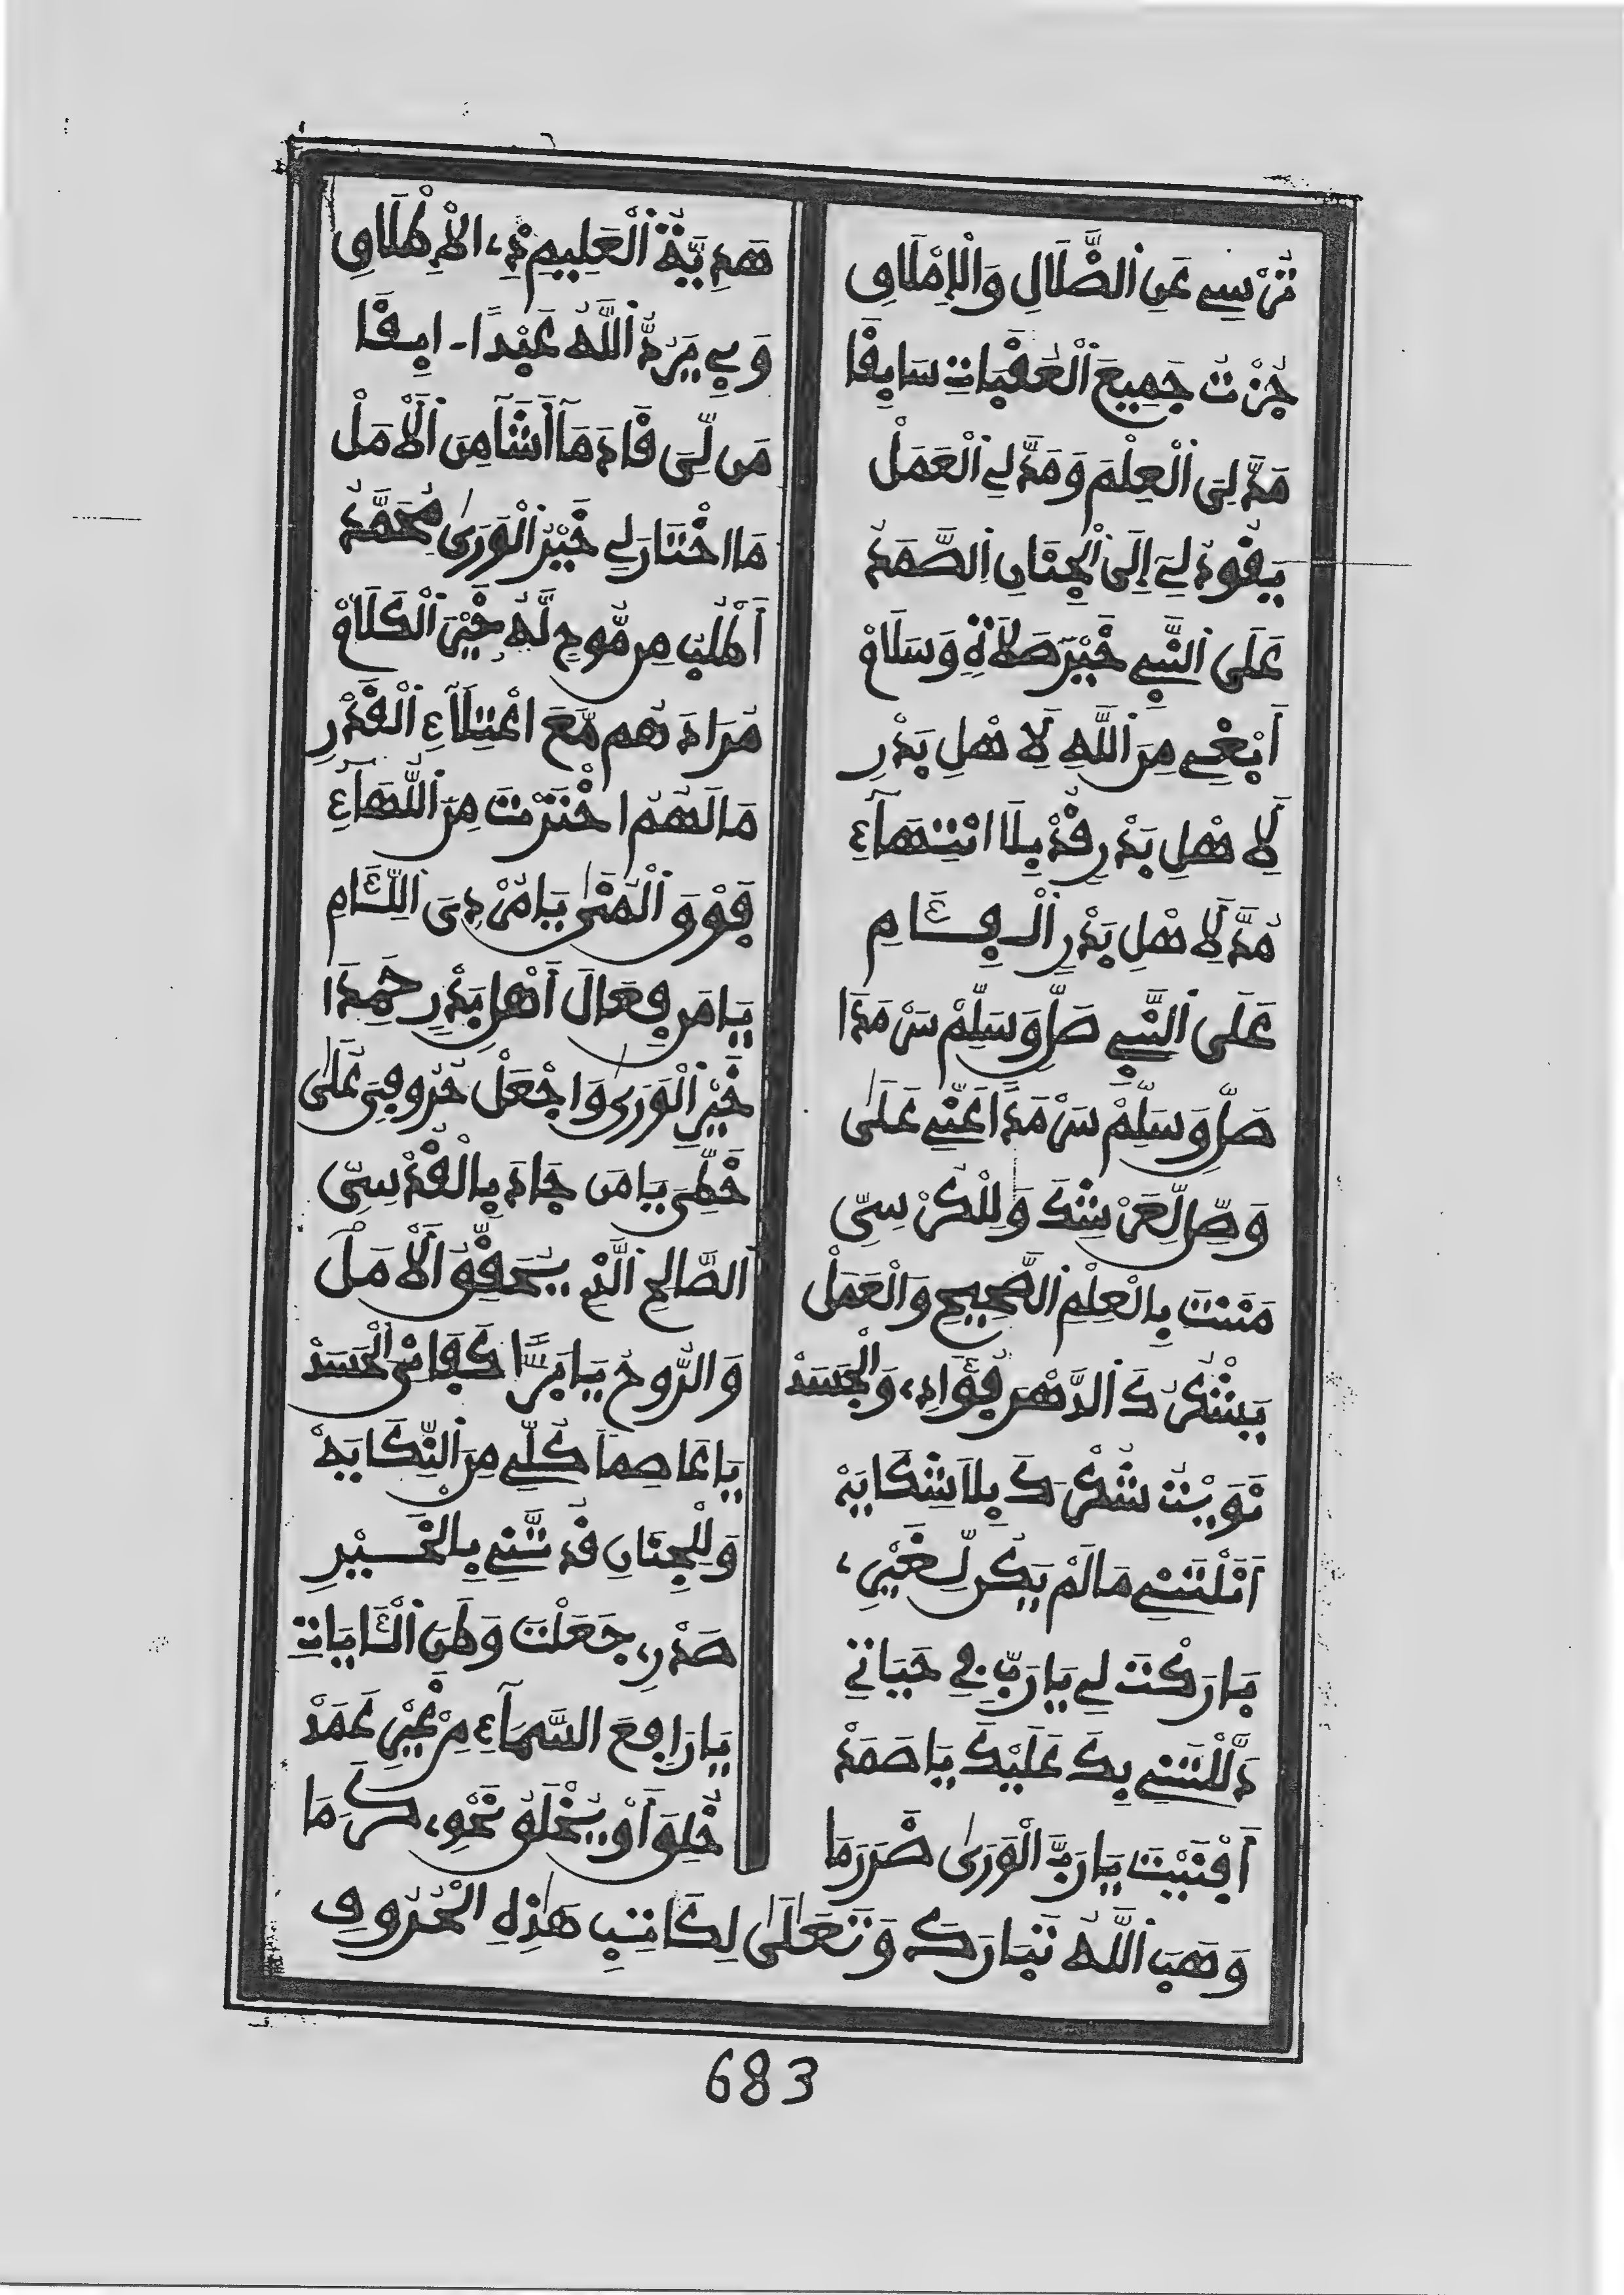 تُرْسِي عَنِ الضَّلَالِ وَالْإِمْلَاقِ هَدِيَّةُ الْعَلِيمِ ذِي الْإِطْلَاقِ
جُزْتُ جَمِيعَ الْعَقَبَاتِ سَابِقَا وَبِي يَرُدُّ اللَّهُ عَبْدًا ـ ابِقَا
مَدَّ لِيَ الْعِلْمَ وَمَدَّ لِي الْعَمَلْ مَن لِّيَ قَادَ مَا أَشَا مِنَ الْأَمَلْ
يَقُودُ لِي إِلَى الْجِنَانِ الصَّمَدُ مَا اخْتَارَ لِي خَيْرُ الْوَرَى مُحَمَّدُ
عَلَى النَّبِي خَيْرَ صَلَاةٍ وَسَلَامْ أَطْلُبُ مِن مُّوحٍ لَّهُ خَيْرَ الْكَلَامْ
أَبْغِي مِنَ اللَّهِ لِأَهْلِ بَدْرِ مُرَادَهُم مَّعَ اعْتِلَاءِ الْقَدْرِ
لِأَهْلِ بَدْرٍ قُدْ بِلَا انْتِهَاءِ مَا لَهُمُ اخْتَرْتَ مِنَ اللَّهَاءِ
مُدَّ لِأَهْلِ بَدْرٍ الْفِئَامِ فَوْقَ الْمُنَى يَا مُرْدِيَ اللِّئَامِ
عَلَى النَّبِي صَلِّ وَسَلِّمْ سَرْمَدَا يَا مَن فِعَالَ أَهْلِ بَدْرٍ حَمِدَا
صَلِّ وَسَلِّمْ سَرْمَدًا عَنِّي عَلَى خَيْرِ الْوَرَى وَاجْعَلْ حُرُوفِيَ عَلَى
وَصِّل لِّعَرْشِكَ وَلِلْكُرْسِيِّ خَطِّيَ يَا مَن جَادَ بِالْقُدْسِيِّ
مَنَنْتَ بِالْعِلْمِ الصَّحِيحِ وَالْعَمَلْ الصَّالِحِ الَّذِي يُحَقِّقُ الْأَمَلْ
يَشْكُرُكَ الدَّهْرَ فُؤَادِي وَالْجَسَدْ وَالرُّوحُ يَا بَرًّا كَفَانِيَ الْحَسَدْ
نَوَيْتُ شُكْرَكَ بِلَا شِكَايَهْ يَا عَاصِمًا كُلِّي مِنَ النِّكَايَهْ
أَنَلْتَنِي مَا لَمْ يَكُن لِّغَيْرِي وَلِلْجِنَانِ قُدْ تَنِي بِالْخَيْرِ
بَارَكْتَ لِي يَا رَبِّ فِي حَيَاتِي صَدْرِي جَعَلْتَ وَطَنَ الْآيَاتِ
دَلَلْتَنِي بِكَ عَلَيْكَ يَا صَمَدْ يَا رَافِعَ السَّمَاءِ مِنْ غَيْرِ عَمَدْ
أَفْنَيْتَ يَا رَبَّ الْوَرَى ضَرَرَ مَا خُلِقَ أَوْ يُخْلَقُ نَحْوِي كَرَمَا
وَهَبَ اللَّهُ تَبَارَكَ وَتَعَلَى لِكَاتِبِ هَذِهِ الْحُرُوفِ
683